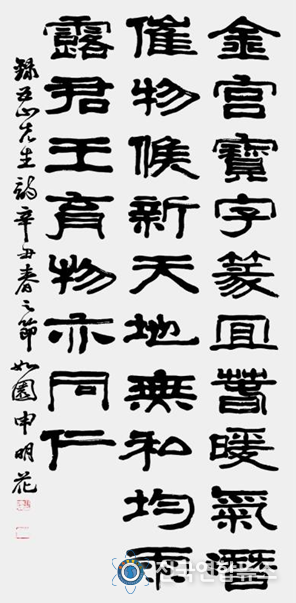 金宮寶字篆宜春暖氣潛
催物候新天地無私均雨
露君王育物亦同仁
錄五山先生詩辛丑春之節 如園申明花
전국연합뉴스